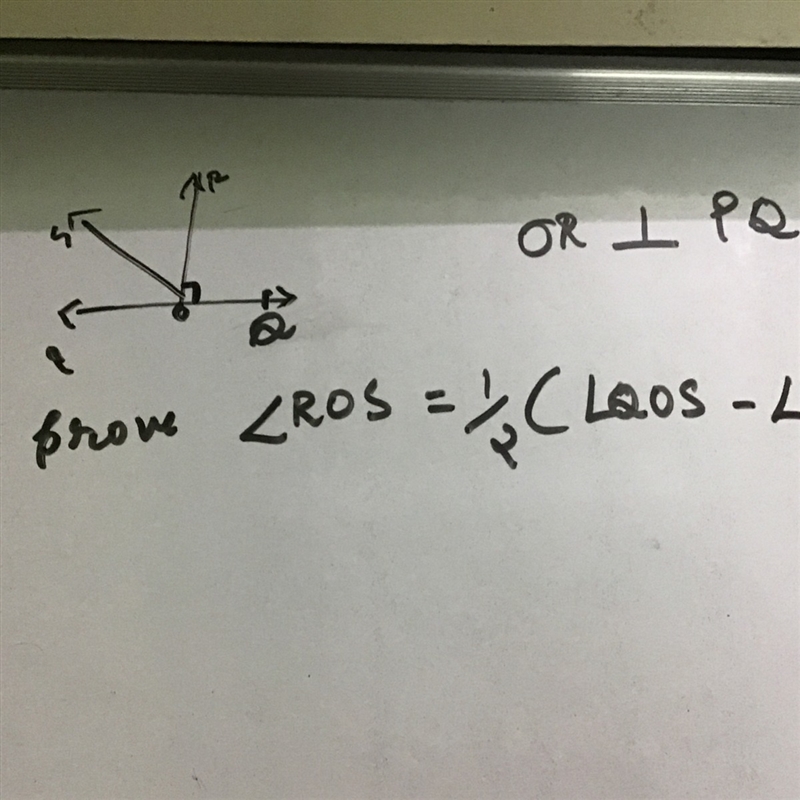 R
S
O
Q
P
OR ⊥ PQ
prove ∠ROS = 1/2 (∠QOS - ∠